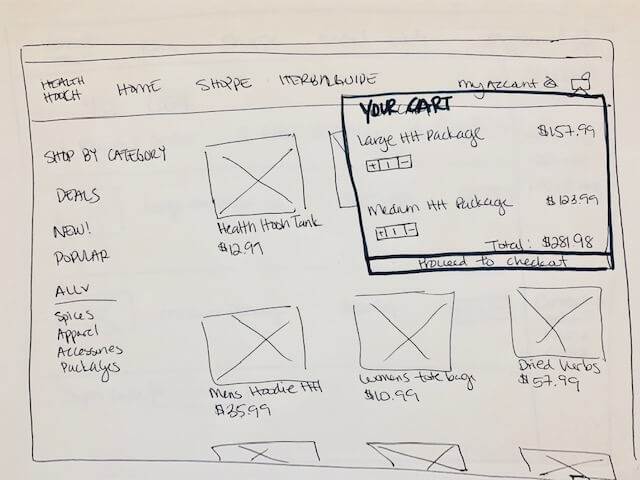 HEALTH
HOOCH
HOME
SHOPPE
HERBAL GUIDE
my Account
YOUR CART
Large HH Package $157.99
+ 1 -
Medium HH Package $123.99
+ 1 -
Total: $281.98
Proceed to checkout
SHOP BY CATEGORY
DEALS
NEW!
POPULAR
ALL V
Spices
Apparel
Accessories
Packages
Health Hooh Tank
$12.99
Mens Hoodie HH
$35.99
Womens tote bag
$10.99
Dried Herbs
$57.99